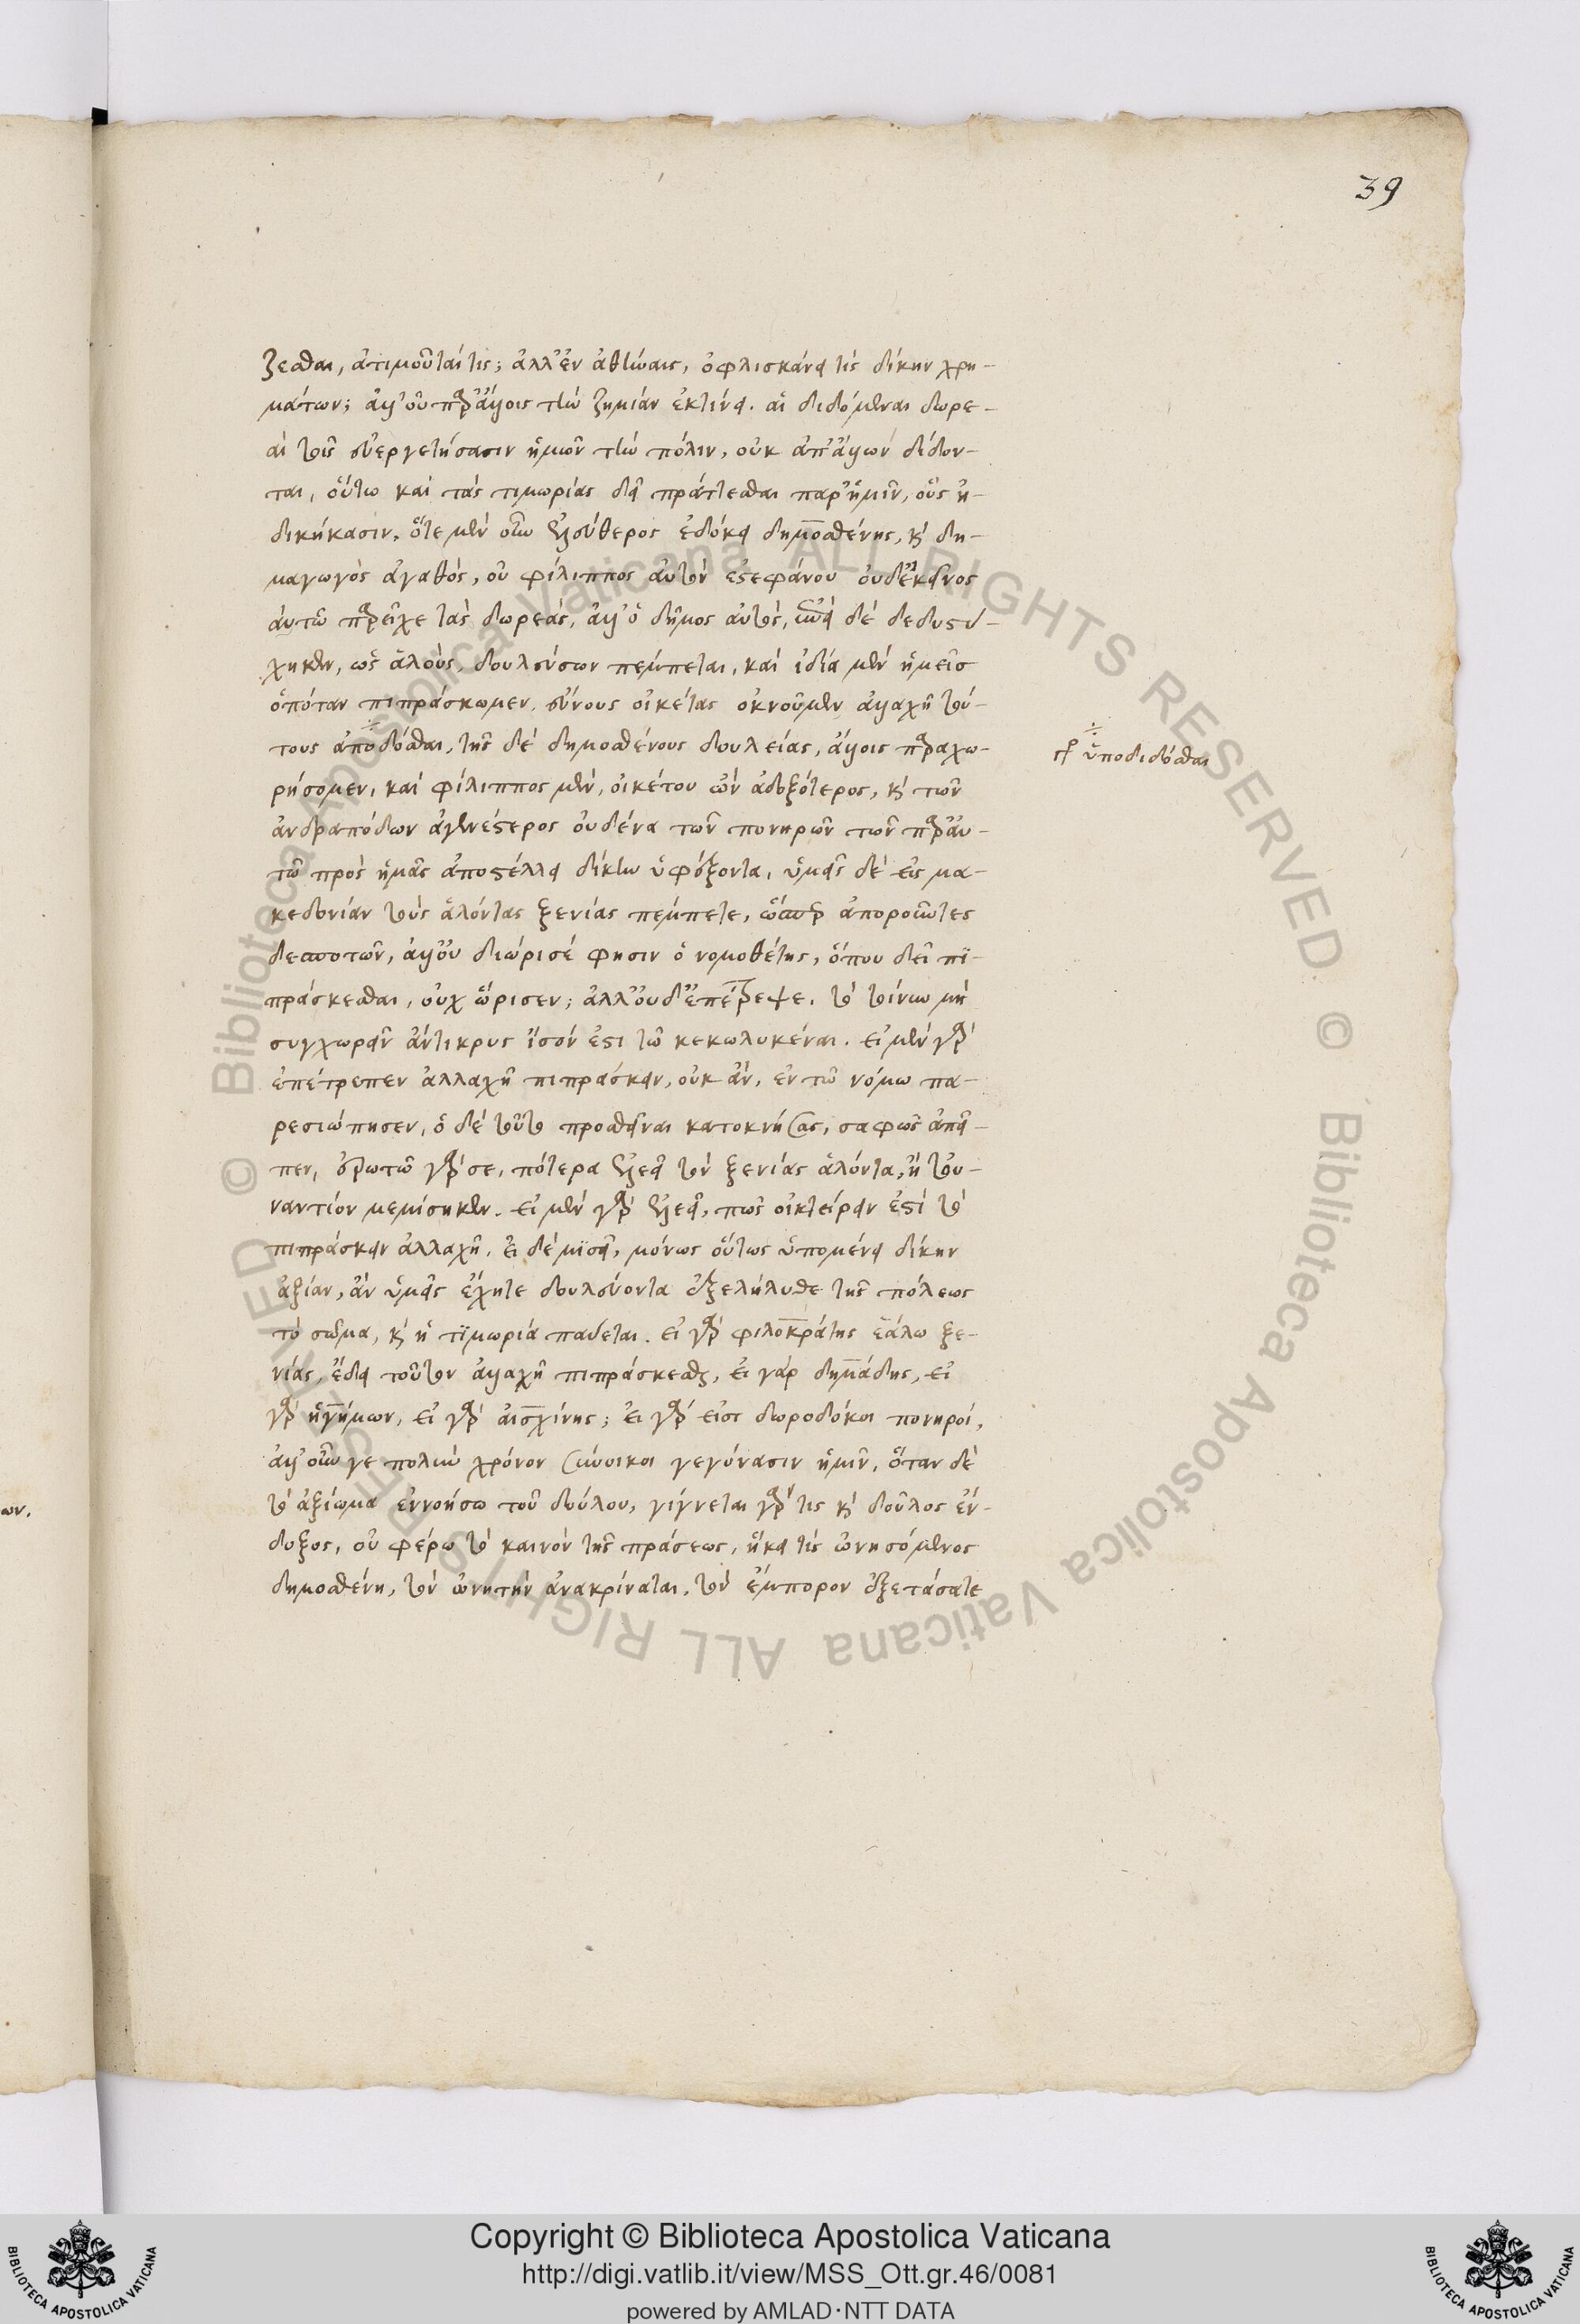 39
ζεσθαι, ἀτιμοῦταί τις; ἀλλ' ἐν ἀθήναις, ὀφλισκάνει τίς δίκην χρη-
μάτων; ἀλλ' οὐ παρ' ἄλλοις τὴν ζημίαν ἐκτίνει. αἱ διδόμεναι δωρε-
αὶ τοῖς εὐεργετήσασιν ἡμῶν τὴν πόλιν, οὐκ ἀπ' ἄλλων δίδον-
ται, οὕτω καὶ τὰς τιμωρίας δεῖ πράττεσθαι παρ' ἡμῖν, οὓς ἠ-
δικήκασιν. ὅτε μὲν οὖν ἐλεύθερος ἐδόκει δημοσθένης, κ' δη-
μαγωγὸς ἀγαθὸς, οὐ φίλιππος αὐτὸν ἐστεφάνου οὐδ' ἐκεῖνος
αὐτῶ παρεῖχε τὰς δωρεὰς, ἀλλ' ὁ δῆμος αὐτὸς, ἐπεὶ δὲ δεδυστύ-
χηκεν, ὡς ἁλοὺς, δουλεύσων πέμπεται, καὶ ἰδία μὲν ἡμεῖς
ὁπόταν πιπράσκωμεν, εὔνους οἰκέτας ὀκνοῦμεν ἀλλαχῆ τού-
τους ἀποδόσθαι, τῆς δὲ δημοσθένους δουλείας, ἄλλοις παραχω-
ρήσομεν, καὶ φίλιππος μὲν, οἰκέτου ὢν ἀδοξότερος, κ' τῶν
ἀνδραπόδων ἀγενέστερος οὐδένα τῶν πονηρῶν τῶν παρ' αὐ-
τῶ πρὸς ἡμᾶς ἀποστέλλει δίκην ὑφέξοντα, ὑμεῖς δὲ εἰς μα-
κεδονίαν τοὺς ἁλόντας ξενίας πέμπετε, ὥσπερ ἀποροῦντες
δεσποτῶν, ἀλλ' οὐ διώρισέ φησιν ὁ νομοθέτης, ὅπου δεῖ πι-
πράσκεσθαι, οὐχ ὥρισεν; ἀλλ' οὐδ' ἐπέτρεψε. τὸ τοίνυν μὴ
συγχωρεῖν ἄντικρυς ἴσον ἐστὶ τῶ κεκωλυκέναι. εἰ μὲν γὰρ
ἐπέτρεπεν ἀλλαχῆ πιπράσκειν, οὐκ ἂν, ἐν τῶ νόμω πα-
ρεσιώπησεν, ὁ δὲ τοῦτο προσθεῖναι κατοκνήσας, σαφῶς ἀπεῖ-
πεν, ἐρωτῶ γάρ σε, πότερα ἐλεεῖ τὸν ξενίας ἁλόντα, ἢ τοὐ-
ναντίον μεμίσηκεν. εἰ μὲν γὰρ ἐλεεῖ, πῶς οἰκτείρειν ἐστὶ τὸ
πιπράσκειν ἀλλαχῆ, εἰ δὲ μισεῖ, μόνως οὕτως ὑπομένει δίκην
ἀξίαν, ἂν ὑμεῖς ἔχητε δουλεύοντα ἐξελήλυθε τῆς πόλεως
τὸ σῶμα, κ' ἡ τιμωρία παύεται. εἰ γὰρ φιλοκράτης ἑάλω ξε-
νίας, ἔδει τοῦτον ἀλλαχῆ πιπράσκεσθαι, εἰ γάρ δημάδης, εἰ
γὰρ ἡγήμων, εἰ γὰρ αἰσχίνης; εἰ γὰρ εἰσι δωροδόκοι πονηροὶ,
ἀλλ' οὖν γε πολὺν χρόνον σύνοικοι γεγόνασιν ἡμῖν, ὅταν δὲ
τὸ ἀξίωμα ἐννοήσω τοῦ δούλου, γίγνεται γάρ τις κ' δοῦλος ἔν-
δοξος, οὐ φέρω τὸ καινὸν τῆς πράσεως, ἥκει τὶς ὠνησόμενος
δημοσθένη, τὸν ὠνητὴν ἀνακρίναται, τὸν ἔμπορον ἐξετάσατε
γρ ὑποδιδόσθαι
ων.
© Biblioteca Apostolica Vaticana ALL RIGHTS RESERVED
© Biblioteca Apostolica Vaticana ALL RIGHTS RESERVED
BIBLIOTECA APOSTOLICA VATICANA
Copyright © Biblioteca Apostolica Vaticana
http://digi.vatlib.it/view/MSS_Ott.gr.46/0081
powered by AMLAD·NTT DATA
BIBLIOTECA APOSTOLICA VATICANA